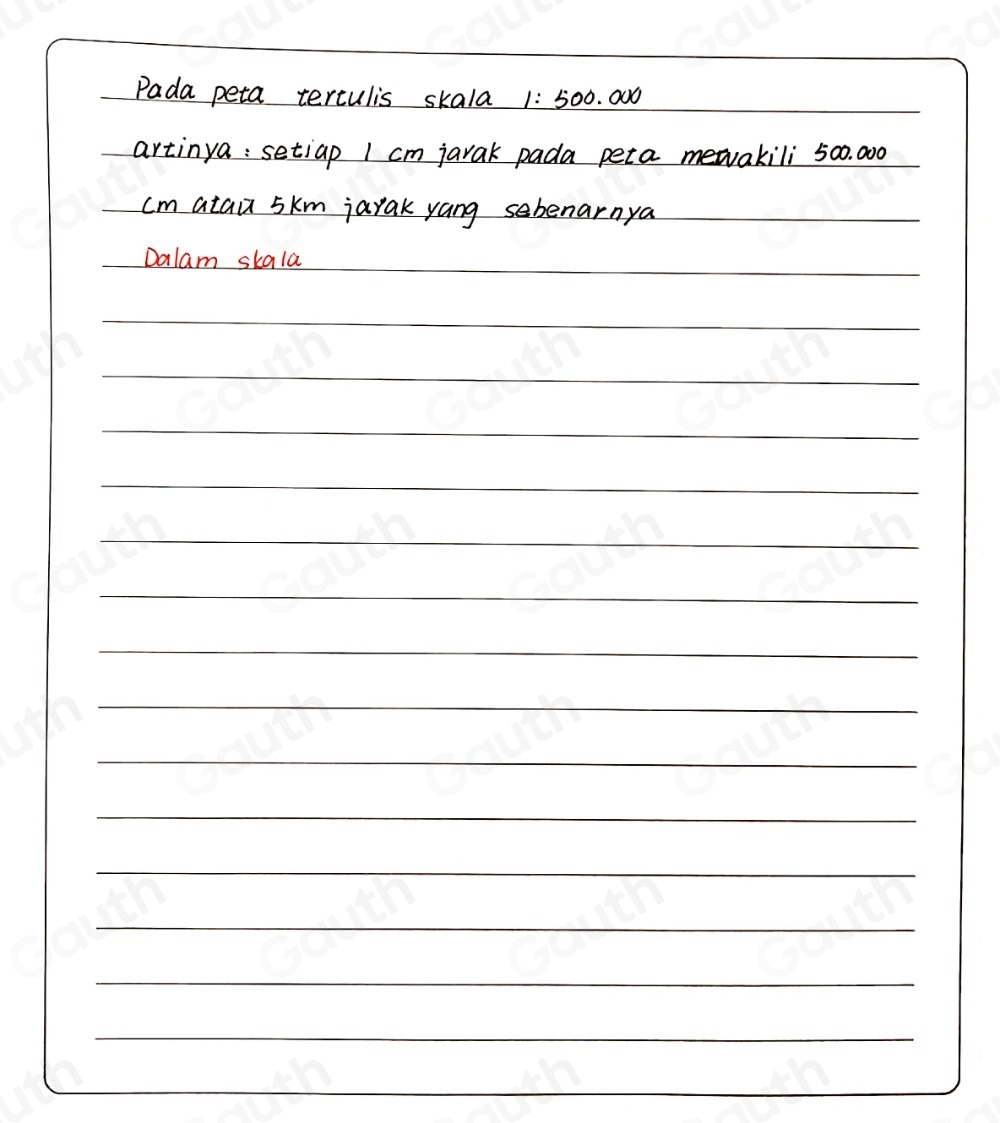 Pada peta tertulis skala 1: 500.000
artinya : setiap 1 cm jarak pada peta mewakili 500.000
cm atau 5km jarak yang sebenarnya
Dalam skala